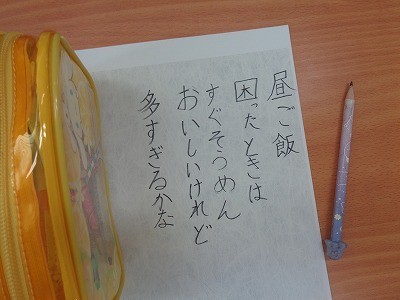 昼ご飯
困ったときは
すぐそうめん
おいしいけれど
多すぎるかな